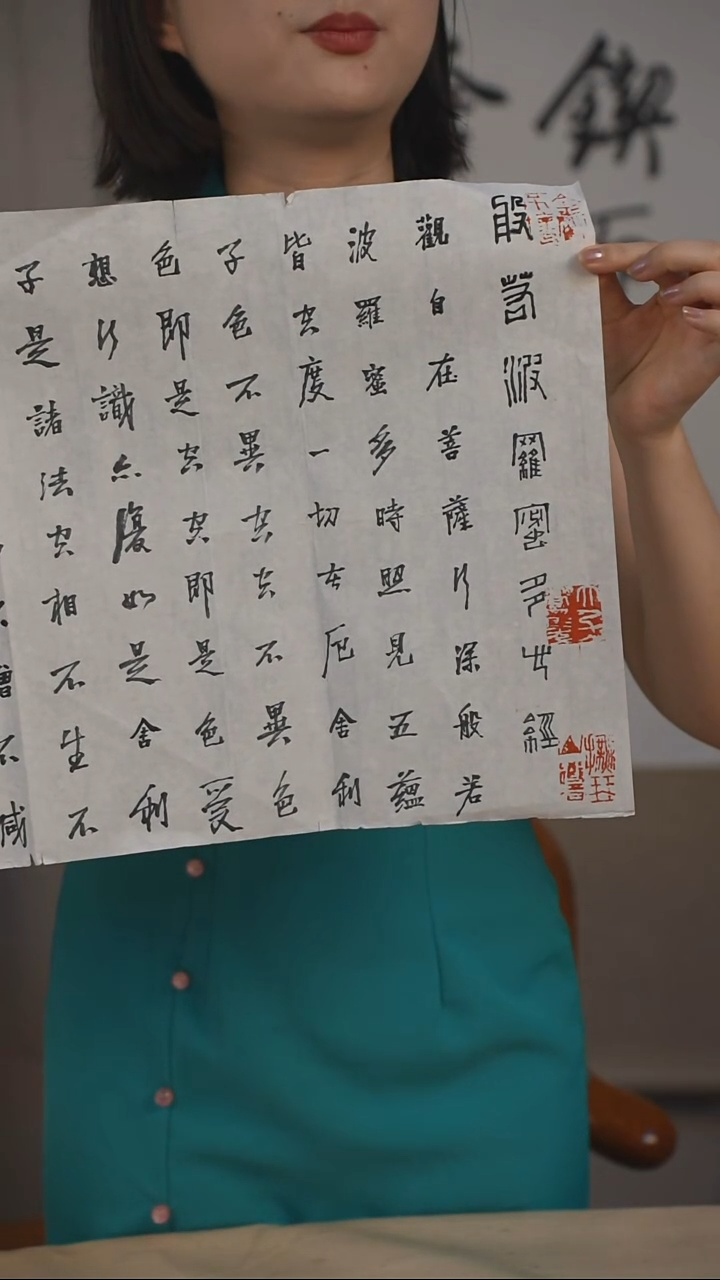 般若波羅蜜多心經
觀自在菩薩行深般若
波羅蜜多時照見五蘊
皆空度一切苦厄舍利
子色不異空空不異色
色即是空空即是色受
想行識亦復如是舍利
子是諸法空相不生不
增不減
鍥